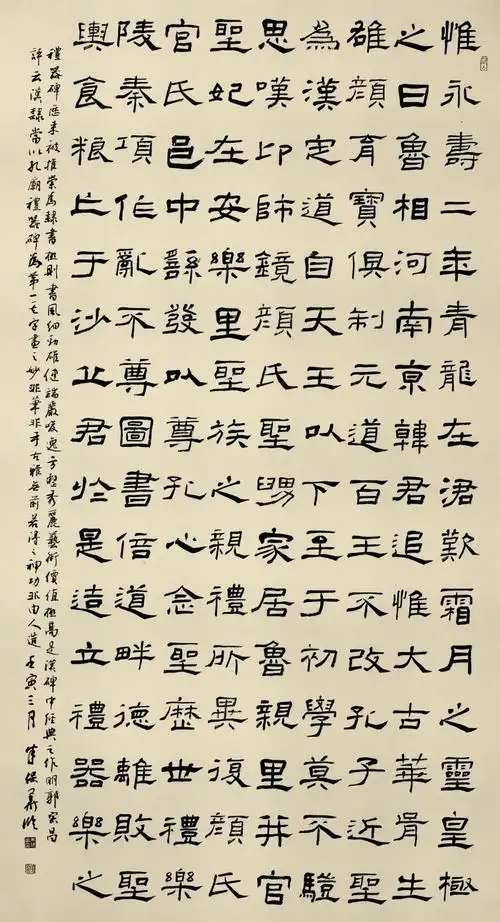 惟永壽二年青龍在涒歎霜月之靈皇極
之日魯相河南京韓君追惟大古華胥生
雄顏育寶俱制元道百王不改孔子近聖
為漢定道自天王以下至于初學莫不驥
思嘆卬師鏡顏氏聖舅家居魯親里并官
聖妃在安樂里聖族之親禮所異復顏氏
官氏邑中繇發以尊孔心念聖歷世禮樂
陵秦項作亂不尊圖書倍道畔德離敗聖
輿食粮亡于沙丘君於是造立禮器樂之
禮器碑歷來被推崇為隸書極則書風細勁雄健端嚴峻逸方整秀麗藝術價值極高是漢碑中經典之作明郭宗昌
評云漢隸當以孔廟禮器碑為第一其字畫之妙非筆非手古雅無前若得之神功非由人造壬寅三月